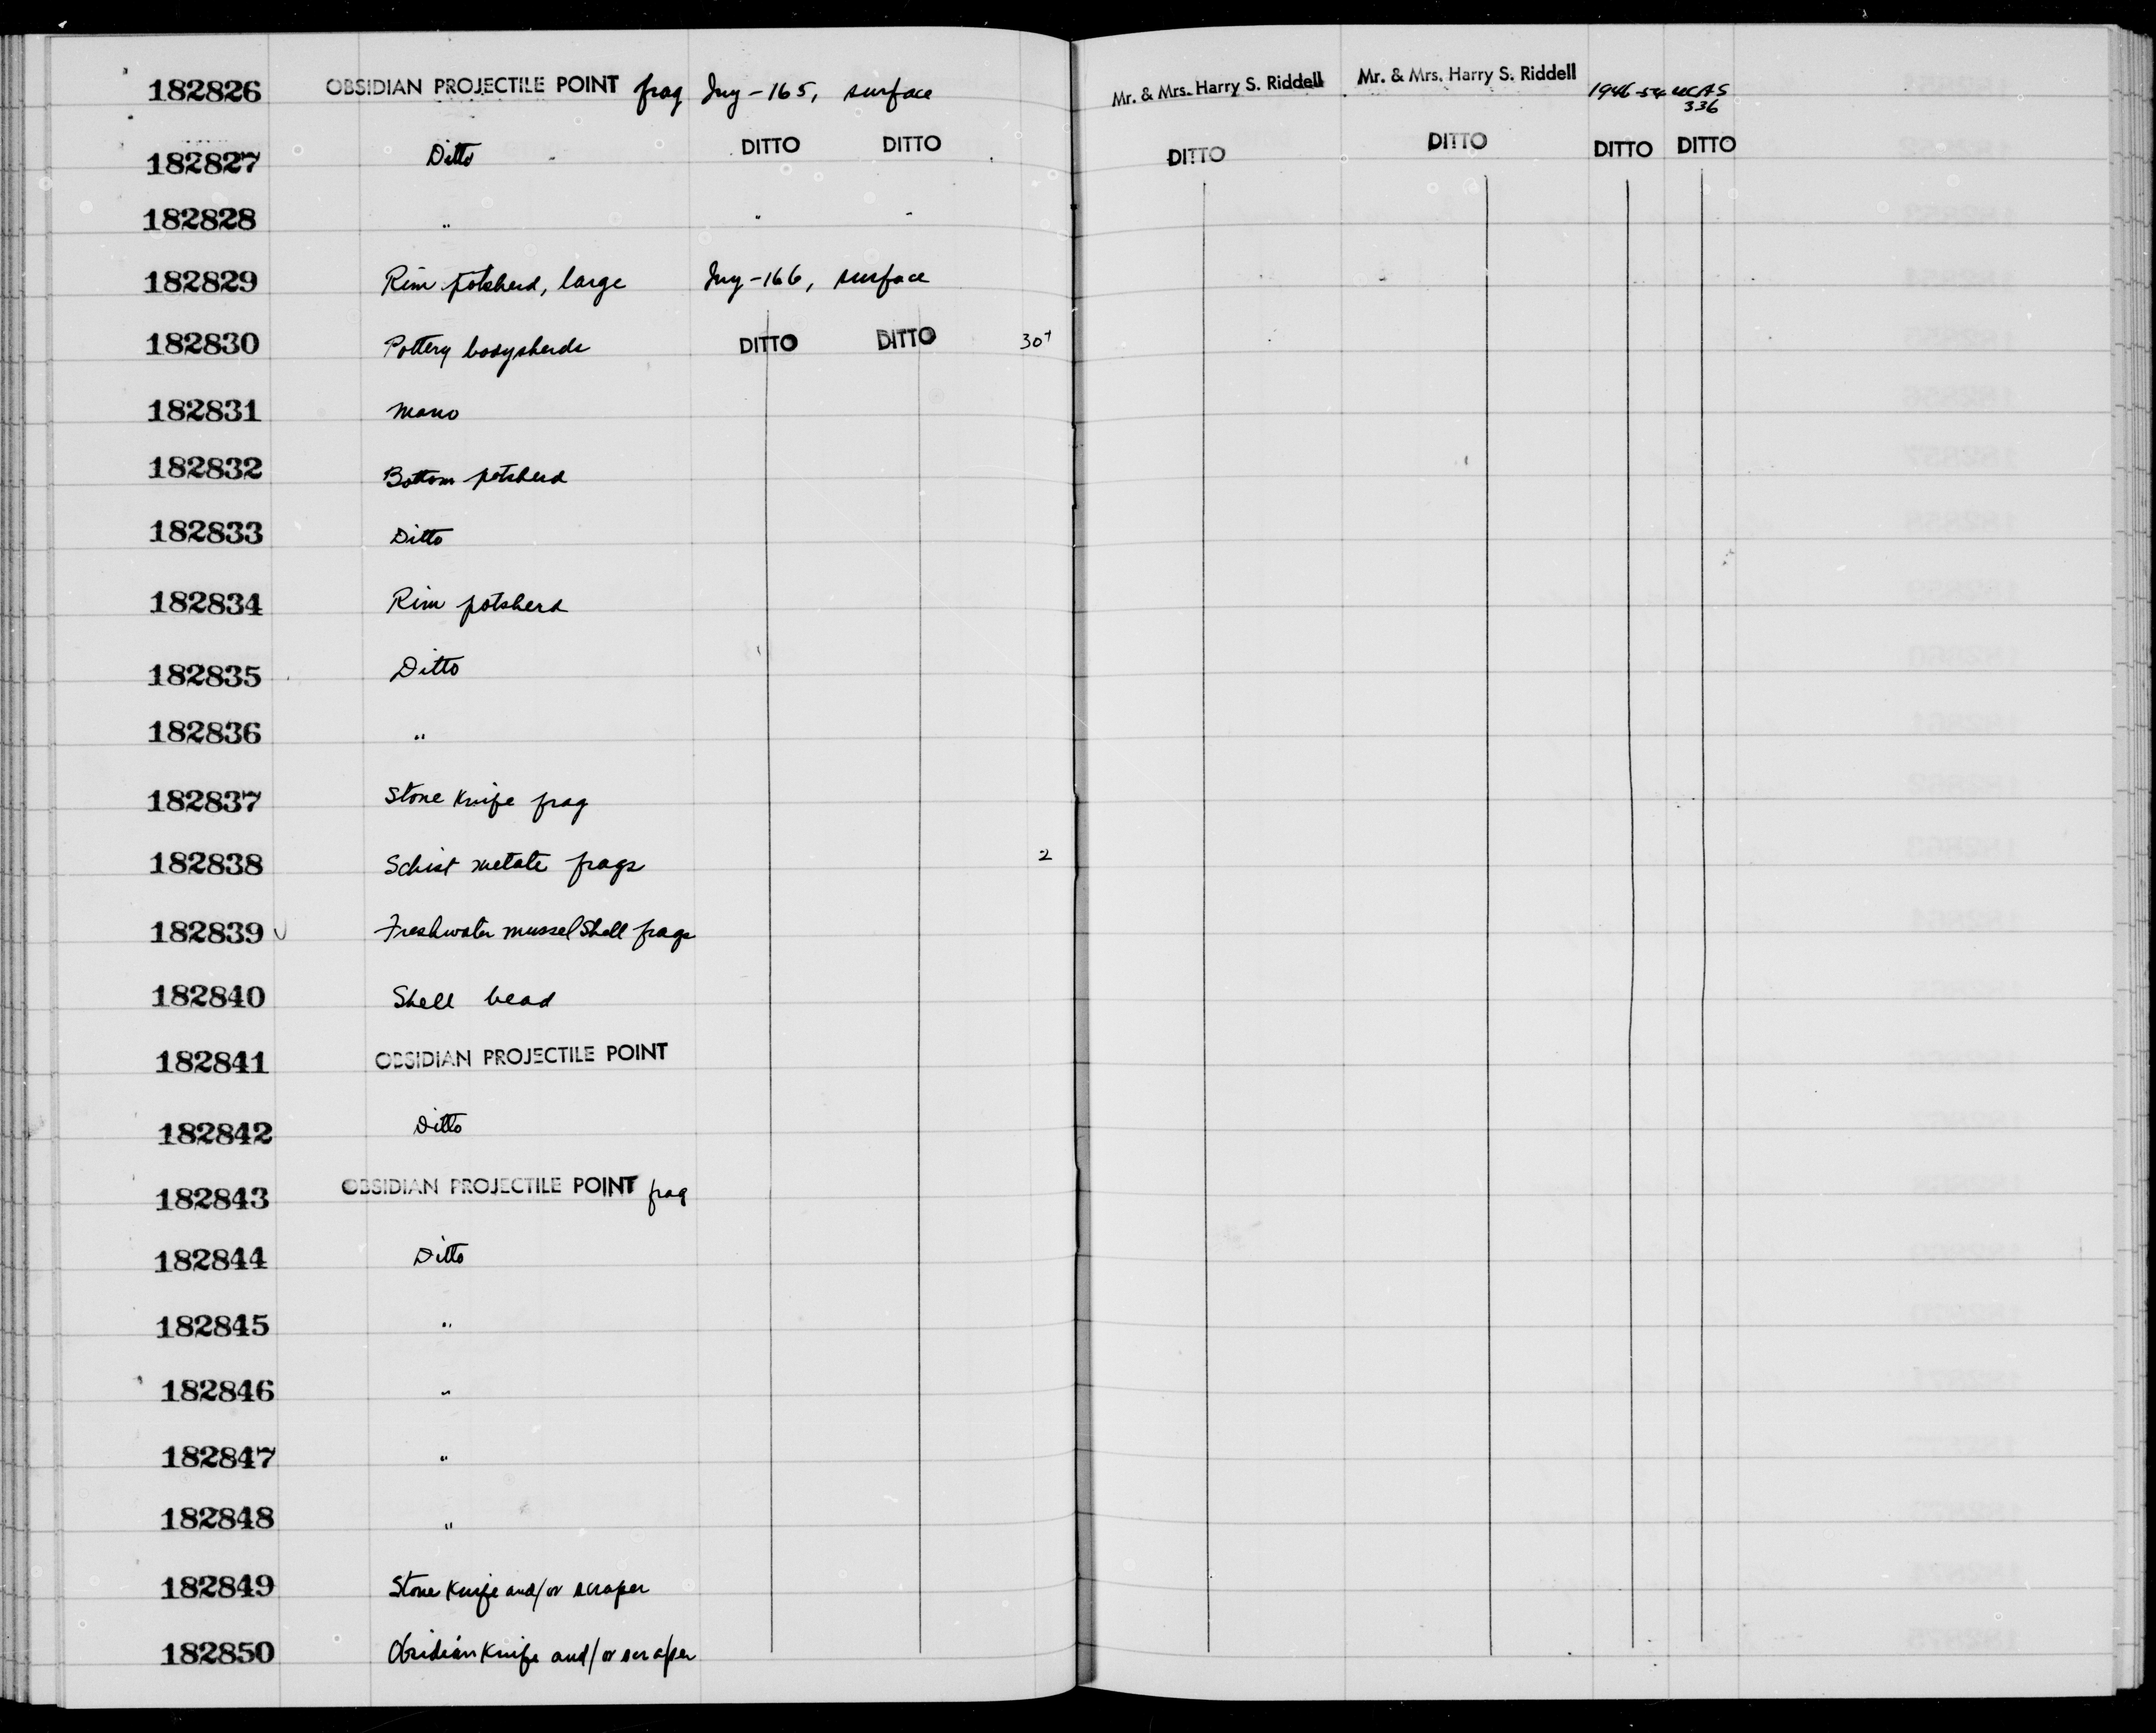 182826 OBSIDIAN PROJECTILE POINT frag Iny-165, surface Mr. & Mrs. Harry S. Riddell Mr. & Mrs. Harry S. Riddell 1946-54 UCAS 336
182827 Ditto DITTO DITTO DITTO DITTO DITTO DITTO
182828 " " "
182829 Rim potsherd, large Iny-166, surface
182830 Pottery bodysherds DITTO DITTO 30+
182831 Mano
182832 Bottom potsherd
182833 Ditto
182834 Rim potsherd
182835 Ditto
182836 "
182837 Stone Knife frag
182838 Schist metate frags 2
182839 Freshwater mussel Shell frags
182840 Shell bead
182841 OBSIDIAN PROJECTILE POINT
182842 Ditto
182843 OBSIDIAN PROJECTILE POINT frag
182844 Ditto
182845 "
182846 "
182847 "
182848 "
182849 Stone Knife and/or scraper
182850 Obsidian Knife and/or scraper